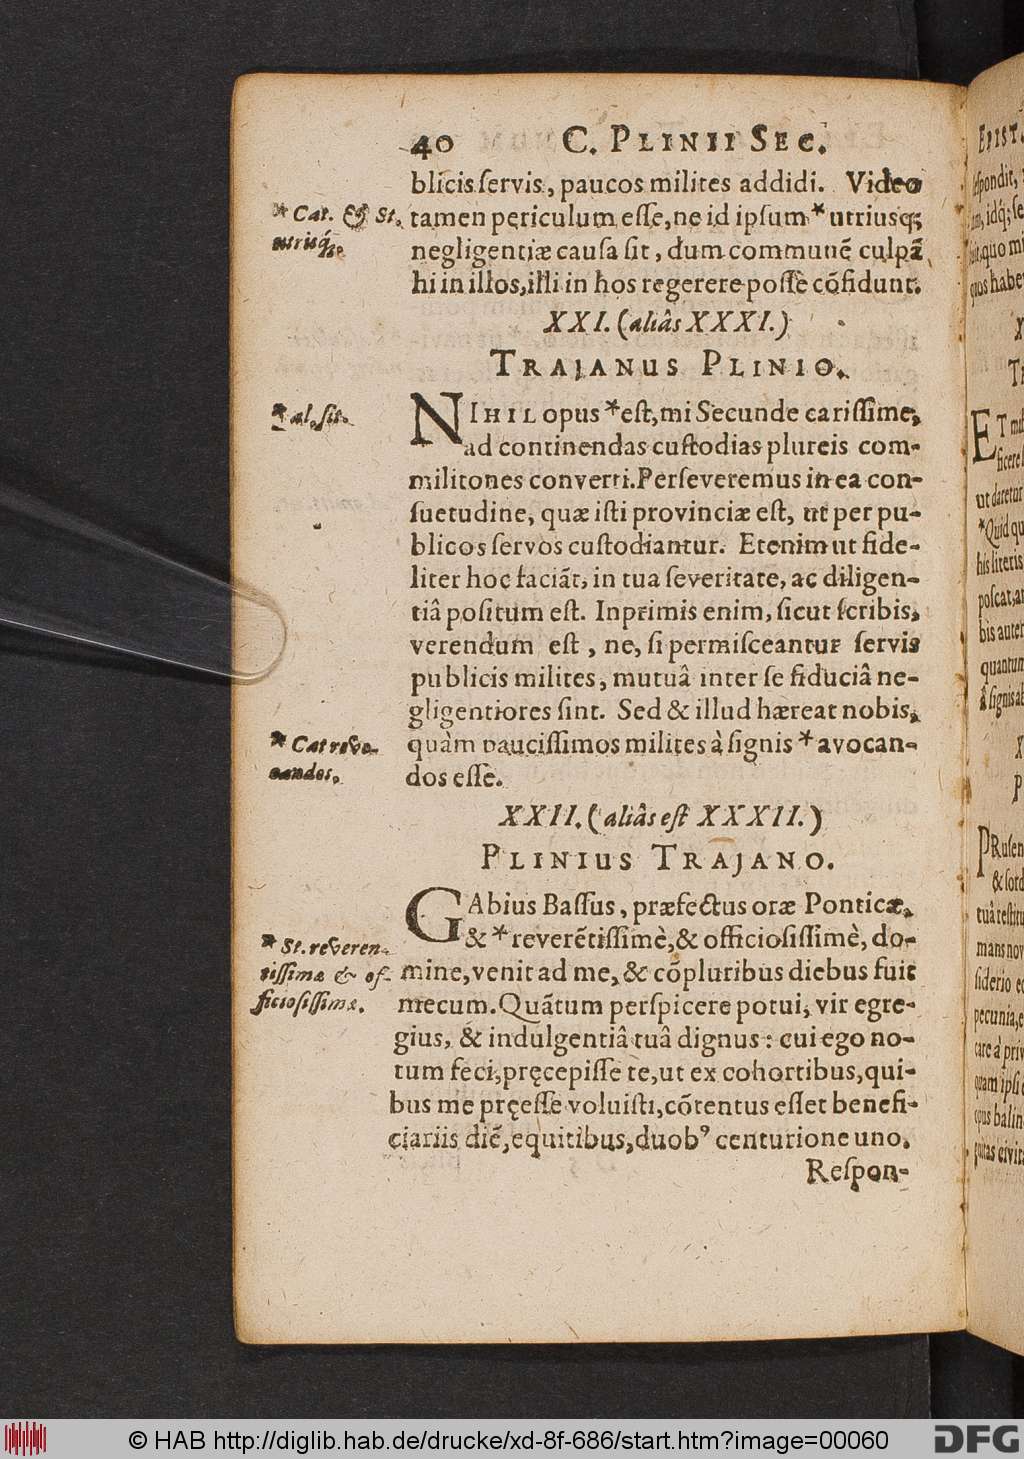 40 C. PLINII SEC.
blicis servis, paucos milites addidi. Video
tamen periculum esse, ne id ipsum * utriusq;
negligentiæ causa sit, dum communẽ culpã
hi in illos, illi in hos regerere posse cõfidunt.
* Cat. & St.
utriusq́;
XXI. (aliâs XXXI.)
TRAJANUS PLINIO.
NIHIL opus * est, mi Secunde carissime,
ad continendas custodias plureis com-
militones converti. Perseveremus in ea con-
suetudine, quæ isti provinciæ est, ut per pu-
blicos servos custodiantur. Etenim ut fide-
liter hoc faciãt, in tua severitate, ac diligen-
tiâ positum est. Inprimis enim, sicut scribis,
verendum est, ne, si permisceantur servis
publicis milites, mutuâ inter se fiduciâ ne-
gligentiores sint. Sed & illud hæreat nobis,
quàm paucissimos milites à signis * avocan-
dos esse.
* al. sit.
* Cat revo-
candos.
XXII. (aliâs est XXXII.)
PLINIUS TRAJANO.
GAbius Bassus, præfectus oræ Ponticæ,
& * reverẽtissimè, & officiosissimè, do-
mine, venit ad me, & cõpluribus diebus fuit
mecum. Quãtum perspicere potui, vir egre-
gius, & indulgentiâ tuâ dignus: cui ego no-
tum feci, pręcepisse te, ut ex cohortibus, qui-
bus me pręesse voluisti, cõtentus esset benefi-
ciariis diẽ, equitibus, duobꝰ centurione uno.
Respon-
* St. reveren-
tissimæ & of-
ficiosissimæ.
EPIST.
ET
ficere
ut daretur
* Quid qu
his literis
poscat, a
quantum
PRusen
& sord
pecunia, e
quam ipsi
© HAB http://diglib.hab.de/drucke/xd-8f-686/start.htm?image=00060
DFG